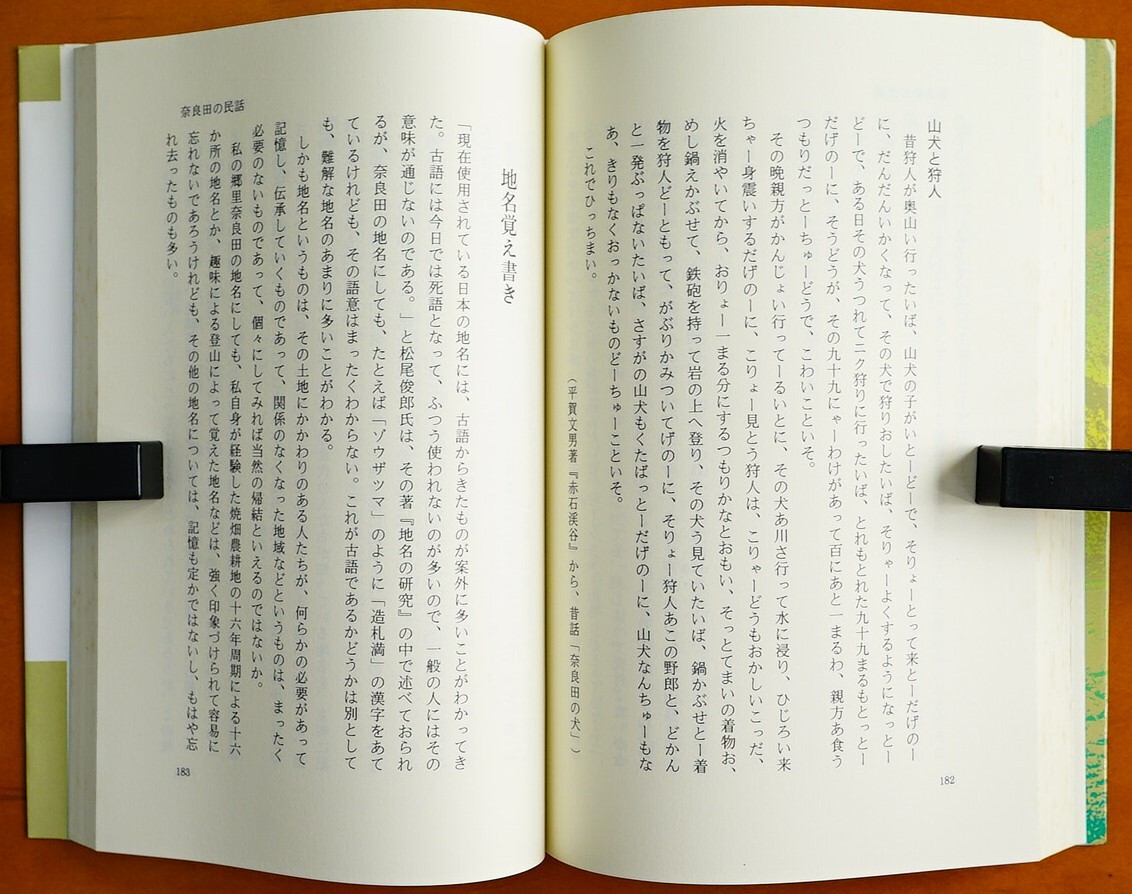 山犬と狩人
昔狩人が奥山い行ったいば、山犬の子がいとーどーで、そりょーとって来とーだげのー
に、だんだんいかくなって、その犬で狩りおしたいば、そりゃーよくするようになっとー
どーで、ある日その犬うつれてニク狩りに行ったいば、とれもとれた九十九まるもとっとー
だげのーに、そうどうが、その九十九にゃーわけがあって百にあと一まるわ、親方あ食う
つもりだっとーちゅーどうで、こわいこといそ。
その晩親方がかんじょい行ってーるいとに、その犬あ川さ行って水に浸り、ひじろい来
ちゃー身震いするだげのーに、こりょー見とう狩人は、こりゃーどうもおかしいこっだ、
火を消やいてから、おりょー一まる分にするつもりかなとおもい、そっとてまいの着物お、
めし鍋えかぶせて、鉄砲を持って岩の上へ登り、その犬う見ていたいば、鍋かぶせとー着
物を狩人どーともって、がぶりかみついてげのーに、そりょー狩人あこの野郎と、どかん
と一発ぶっぱないたいば、さすがの山犬もくたばっとーだげのーに、山犬なんちゅーもな
あ、きりもなくおっかないものどーちゅーこといそ。
これでひっちまい。
(平賀文男著『赤石渓谷』から、昔話「奈良田の犬」)
182
地名覚え書き
「現在使用されている日本の地名には、古語からきたものが案外に多いことがわかってき
た。古語には今日では死語となって、ふつう使われないのが多いので、一般の人にはその
意味が通じないのである。」と松尾俊郎氏は、その著『地名の研究』の中で述べておられ
るが、奈良田の地名にしても、たとえば「ゾウザツマ」のように「造札満」の漢字をあて
ているけれども、その語意はまったくわからない。これが古語であるかどうかは別として
も、難解な地名のあまりに多いことがわかる。
しかも地名というものは、その土地にかかわりのある人たちが、何らかの必要があって
記憶し、伝承していくものであって、関係のなくなった地域などというものは、まったく
必要のないものであって、個々にしてみれば当然の帰結といえるのではないか。
私の郷里奈良田の地名にしても、私自身が経験した焼畑農耕地の十六年周期による十六
か所の地名とか、趣味による登山によって覚えた地名などは、強く印象づけられて容易に
忘れないであろうけれども、その他の地名については、記憶も定かではないし、もはや忘
れ去ったものも多い。
奈良田の民話
183